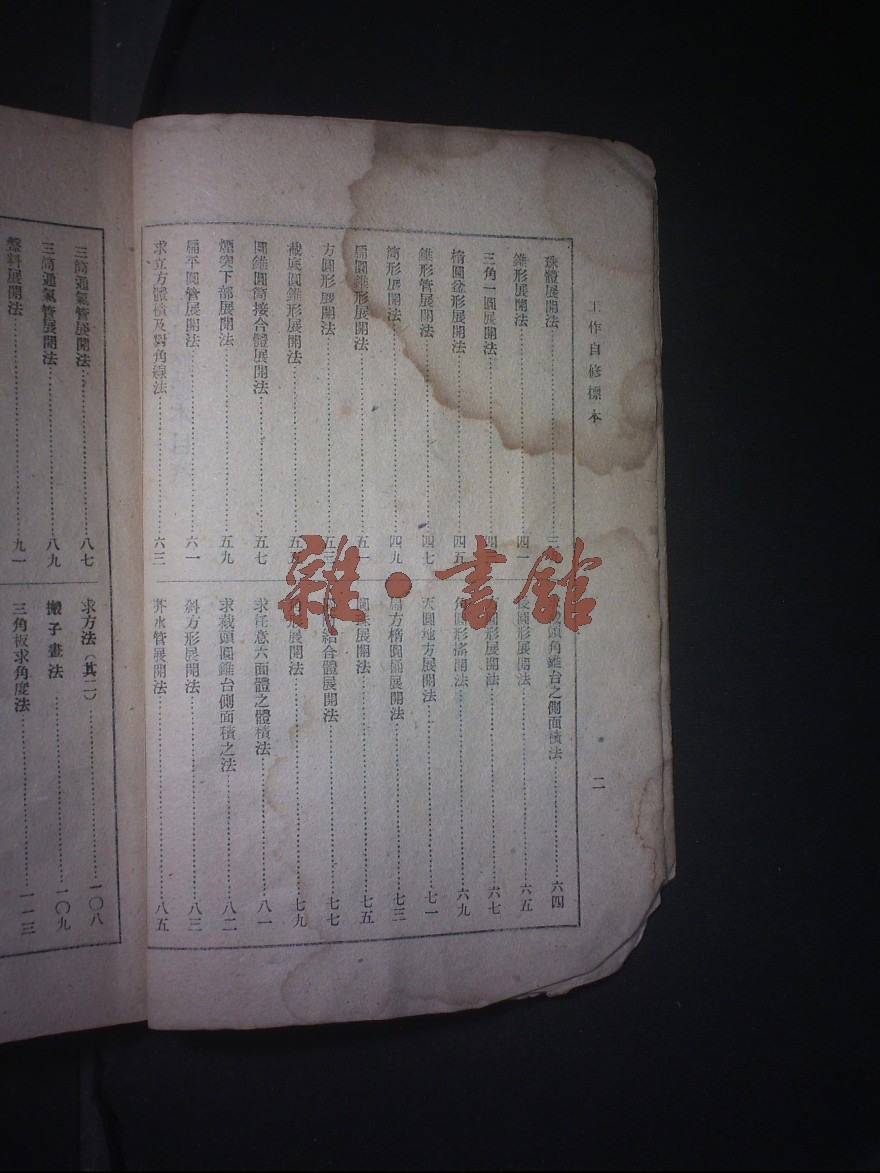 工作自修標本
二
珠體展開法……三
錐形展開法……四一
三角一圓展開法……四
楕圓盆形展開法……四五
錐形管展開法……四七
筒形展開法……四九
扁圓錐形展開法……五一
方圓形展開法……五三
截底圓錐形展開法……五五
圓錐圓筒接合體展開法……五七
煙突下部展開法……五九
扁平圓管展開法……六一
求立方體積及對角線法……六三
頭角錐台之側面積法……六四
長圓形展開法……六五
圓形展開法……六七
形展開法……六九
天圓地方展開法……七一
扁方楕圓桶展開法……七三
圓珠展開法……七五
結合體展開法……七七
形展開法……七九
求任意六面體之體積法……八一
求截頭圓錐台側面積之法……八二
斜方形展開法……八三
水管展開法……八五
三筒通氣管展開法……八七
三筒通氣管展開法……八九
盤料展開法……九一
求方法（其二）……一〇八
搬子畫法……一〇九
三角板求角度法……一一三
雜·書館